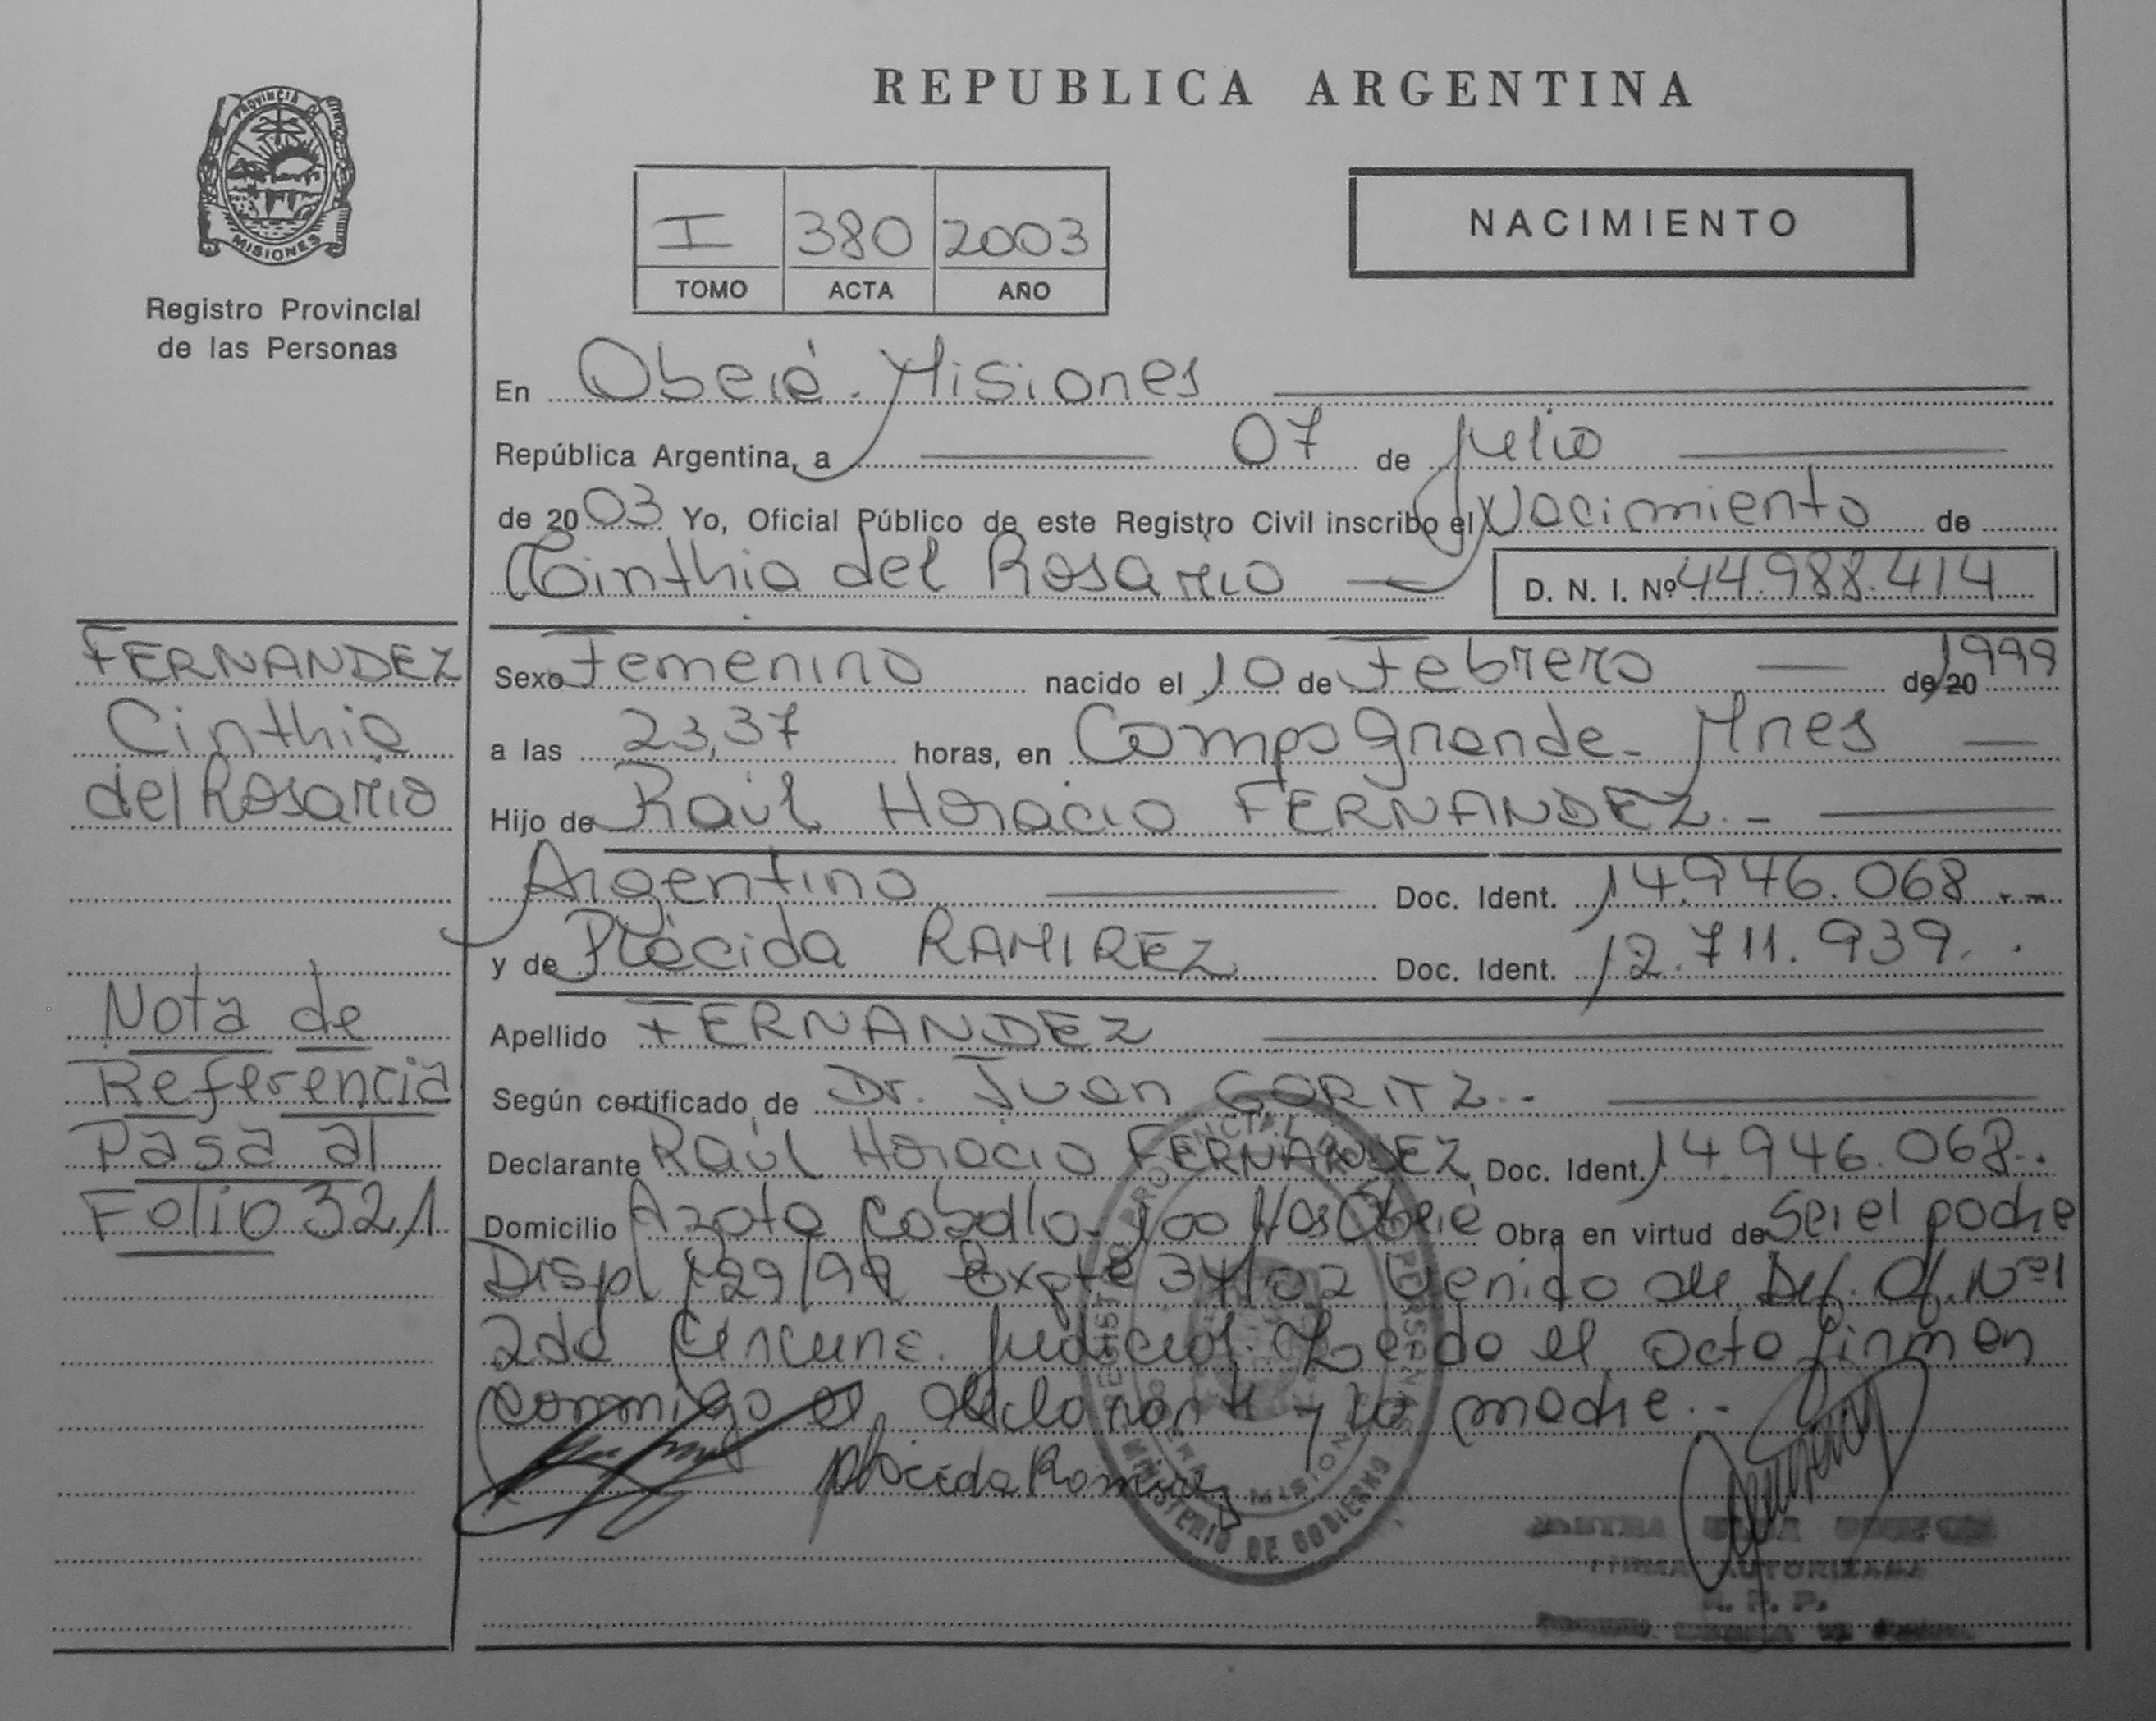 PROVINCIA DE
MISIONES
Registro Provincial
de las Personas
REPUBLICA ARGENTINA
I 380 2003
TOMO ACTA AÑO
NACIMIENTO
En Oberá - Misiones
República Argentina, a 07 de Julio
de 2003 Yo, Oficial Público de este Registro Civil inscribo el Nacimiento de
Cinthia del Rosario D. N. I. Nº 44.988.414
FERNANDEZ
Cinthia
del Rosario
Nota de
Referencia
Pasa al
Folio 321
Sexo Femenino nacido el 10 de Febrero de 20 1999
a las 23,37 horas, en Campo Grande - Mnes
Hijo de Raúl Horacio FERNANDEZ.-
Argentino Doc. Ident. 14.946.068.--
y de Plácida RAMIREZ Doc. Ident. 12.711.939.
Apellido FERNANDEZ
Según certificado de Dr. Juan GORITZ.-
Declarante Raúl Horacio FERNANDEZ Doc. Ident. 14.946.068.-
Domicilio Azota Caballo 100 Has Oberá Obra en virtud de Ser el padre
Disp 129/99 Expte 37/02 Venido de Def. Of. Nº 1
2da Circunc. Judicial. Leida el acta firman
conmigo el declarante y la madre.-
placida Ramirez
REGISTRO PROVINCIAL DE LAS PERSONAS
MINISTERIO DE GOBIERNO
FIRMA AUTORIZADA
R. P. P.